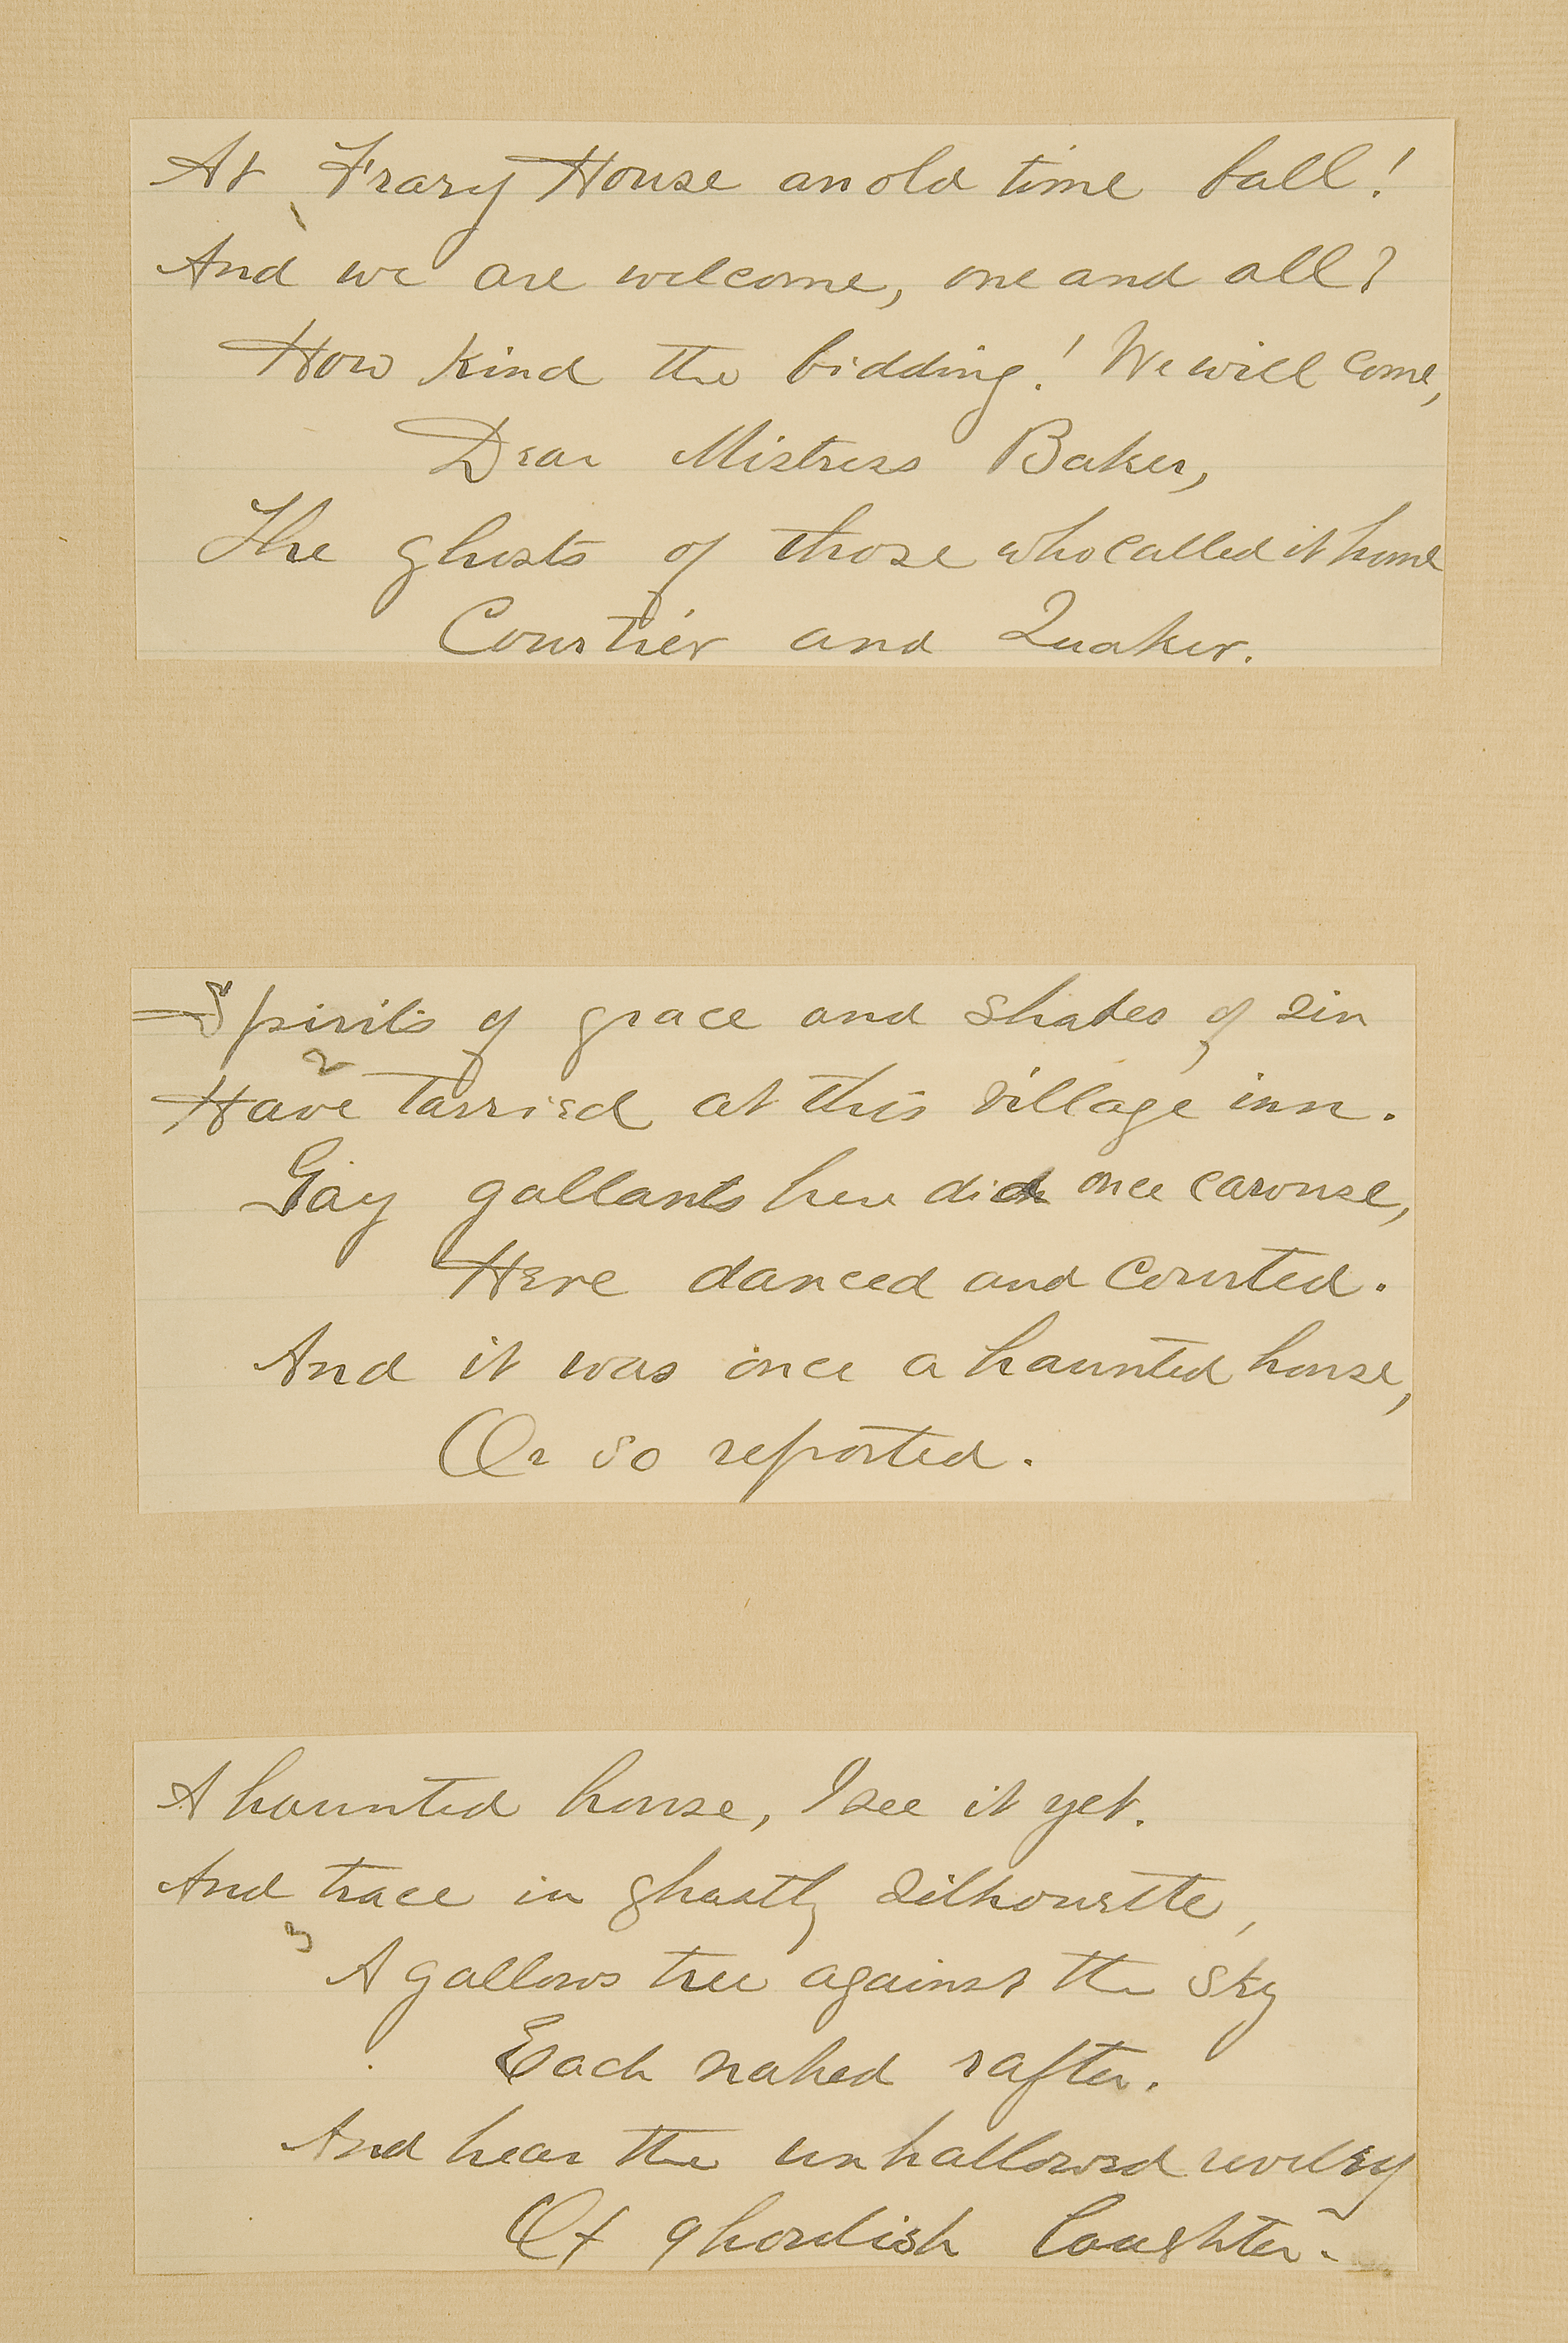 At Frary House an old time ball!
And we are welcome, one and all?
How kind the bidding! We will come,
Dear Mistress Baker,
The ghosts of those who called it home
Courtier and Quaker.
Spirits of grace and shades of sin
2
Have tarried at this village inn.
Gay gallants here did once carouse,
Here danced and courted.
And it was once a haunted house,
Or so reported.
A haunted house, I see it yet.
And trace in ghastly silhouette,
3
A gallows tree against the sky
Each naked rafter.
And hear the unhallowed revelry
Of ghoulish laughter.